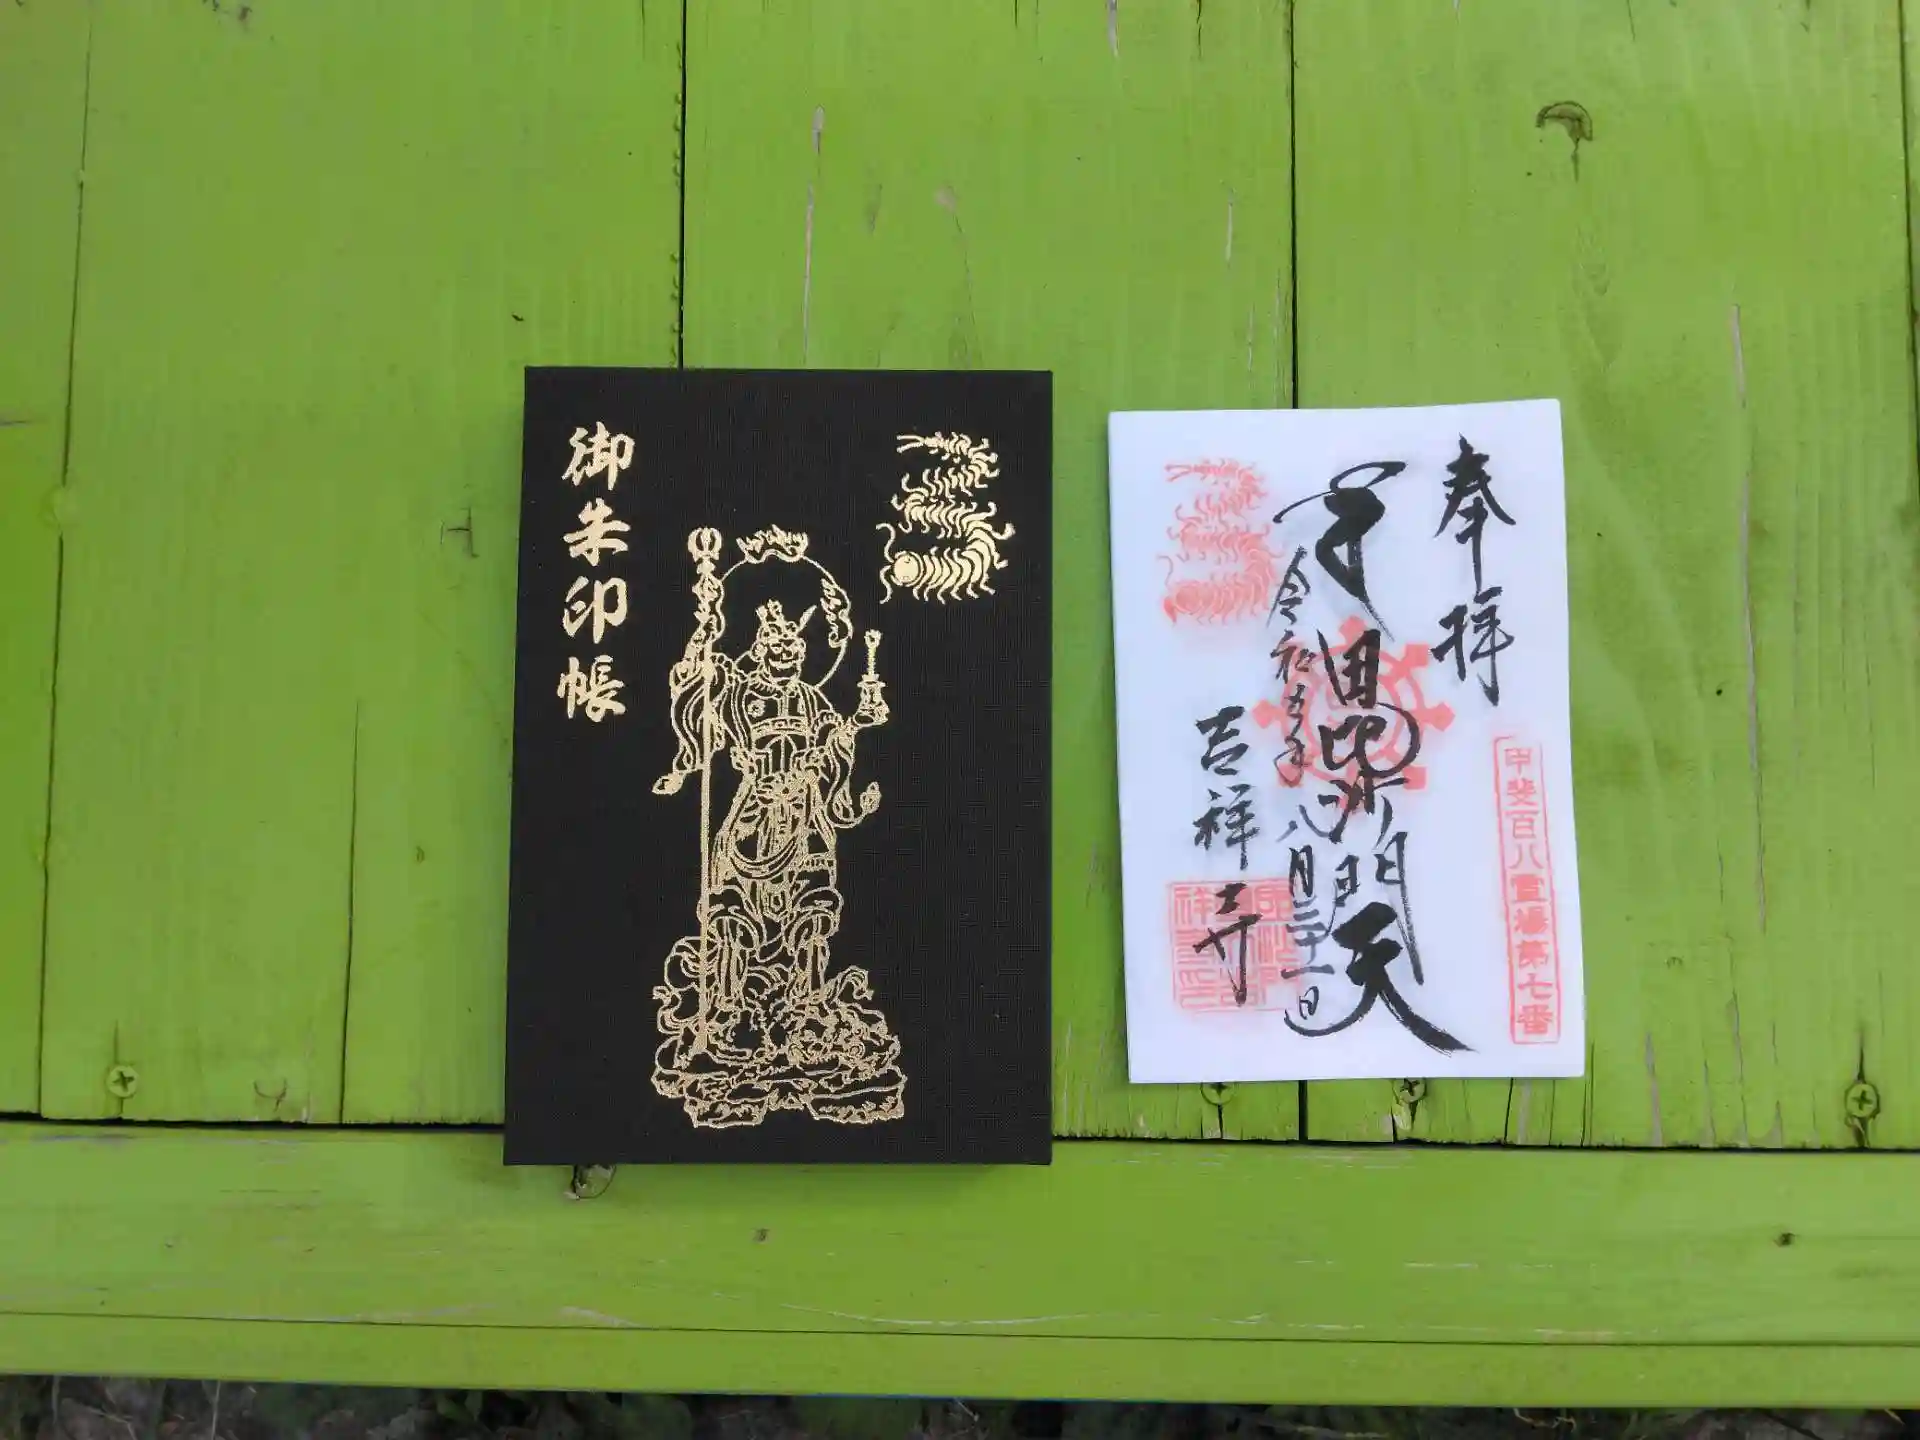 御朱印帳
奉拝
甲斐百八霊場第七番
毘沙門天
八月二十一日
吉祥寺